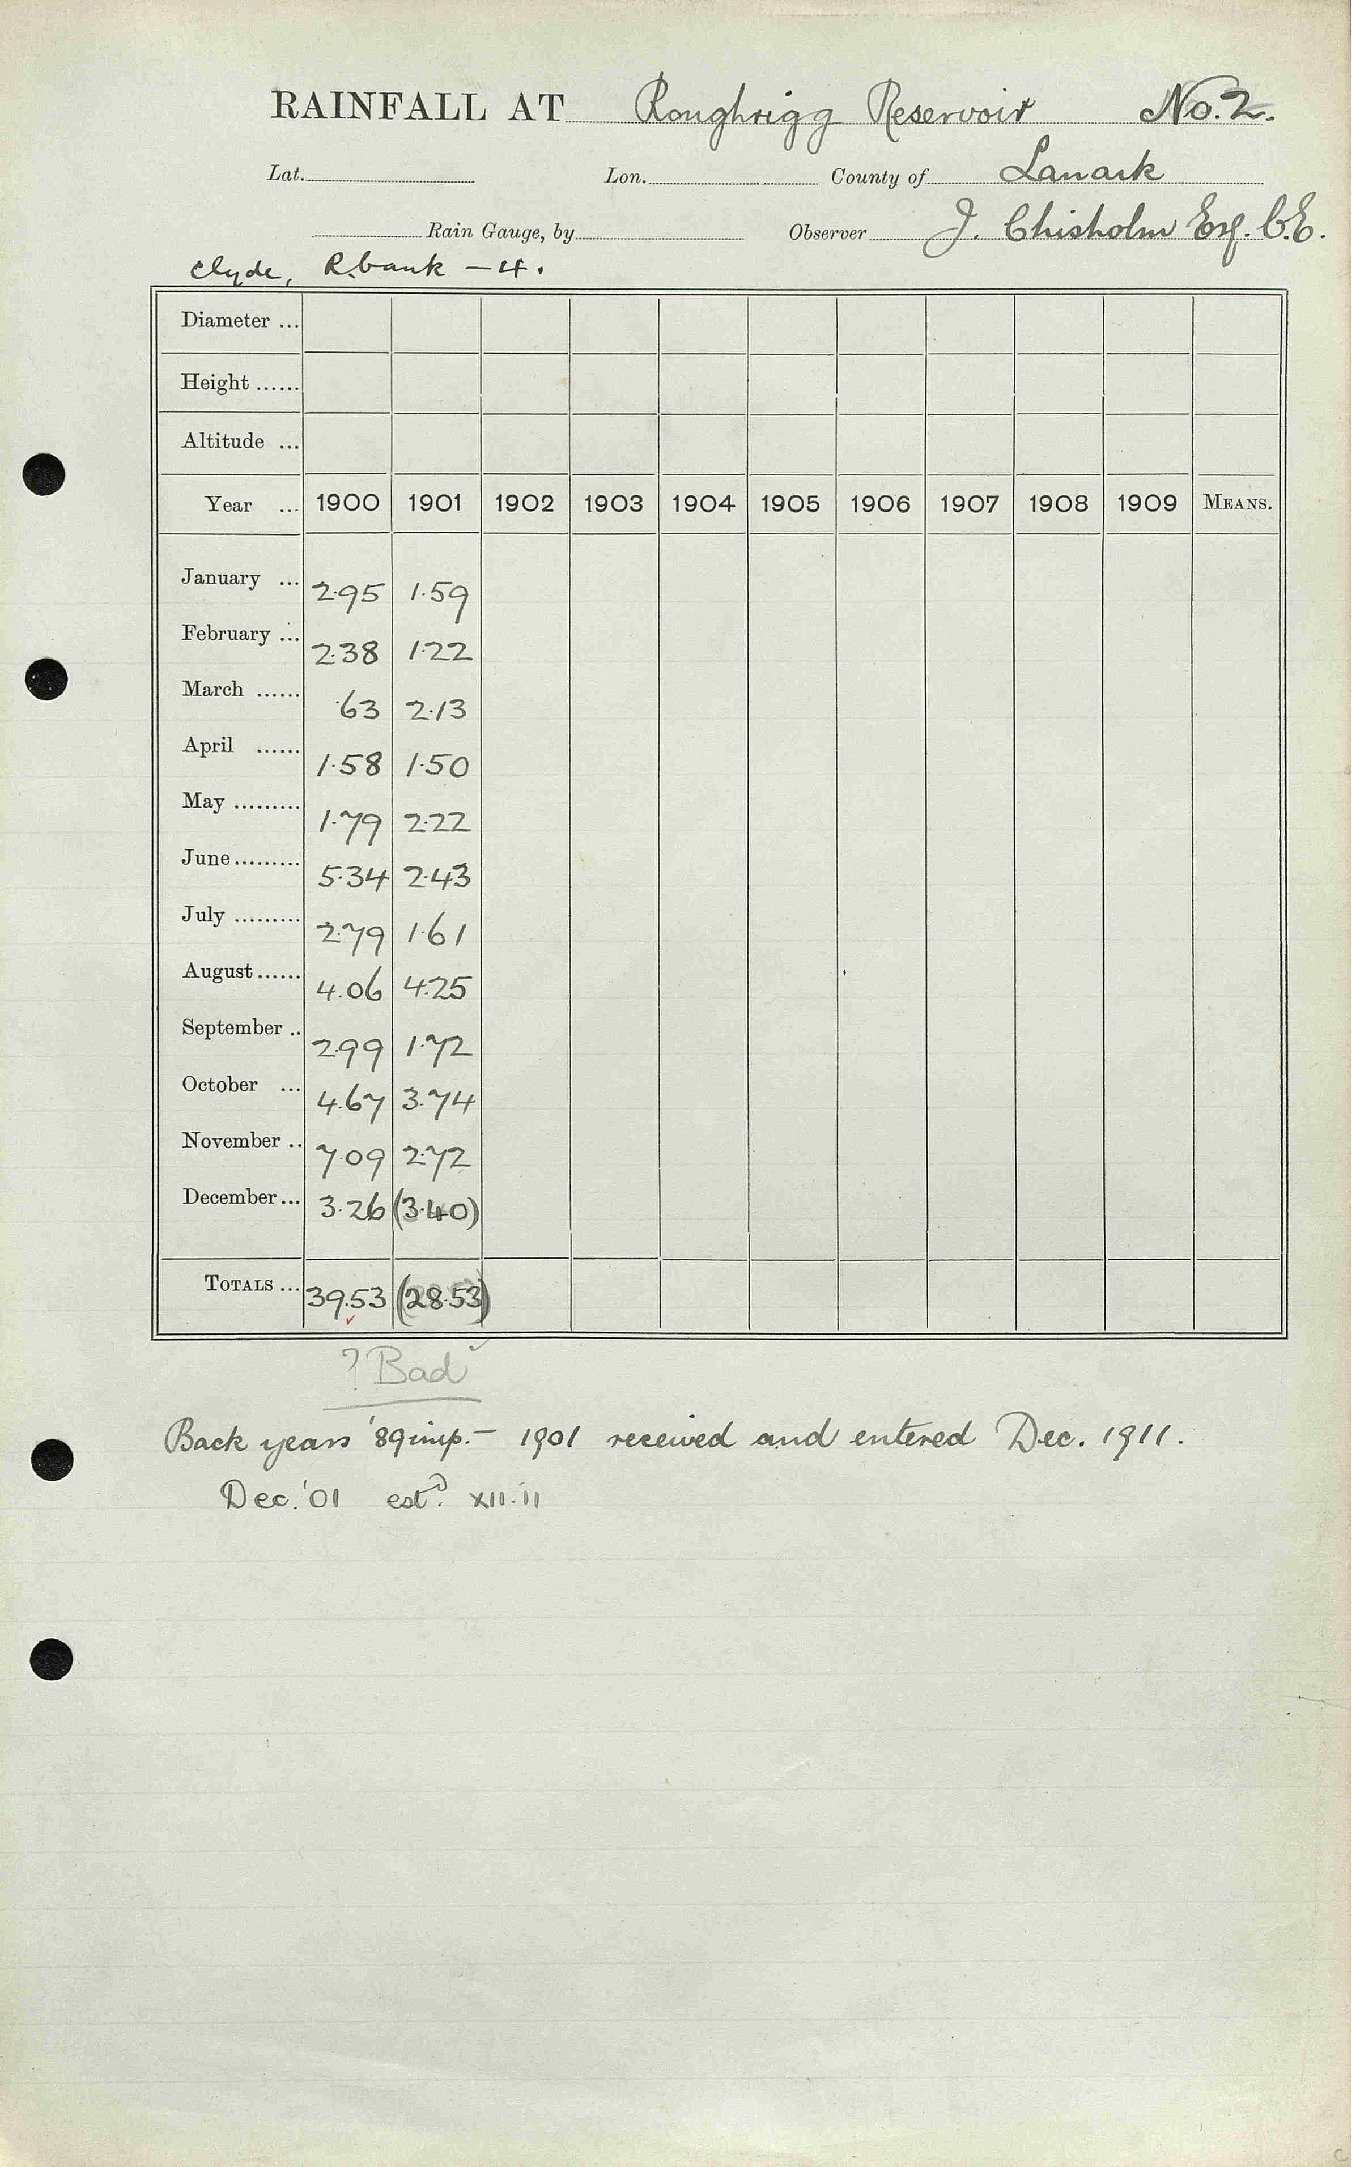 RAINFALL AT Roughrigg Reservoir No. 2.
Lat. Lon. County of Lanark
Rain Gauge, by Observer J. Chisholm Esq. C.E.
Clyde, R. bank — 4.
Diameter ...
Height ......
Altitude ...
Year ... 1900 1901 1902 1903 1904 1905 1906 1907 1908 1909 MEANS.
January ... 2.95 1.59
February ... 2.38 1.22
March ...... .63 2.13
April ...... 1.58 1.50
May ......... 1.79 2.22
June ......... 5.34 2.43
July ......... 2.79 1.61
August ...... 4.06 4.25
September .. 2.99 1.72
October ... 4.67 3.74
November .. 7.09 2.72
December ... 3.26 (3.40)
TOTALS ... 39.53 (28.53)
? Bad
Back years '89 imp. – 1901 received and entered Dec. 1911.
Dec. '01 estd. XII.11